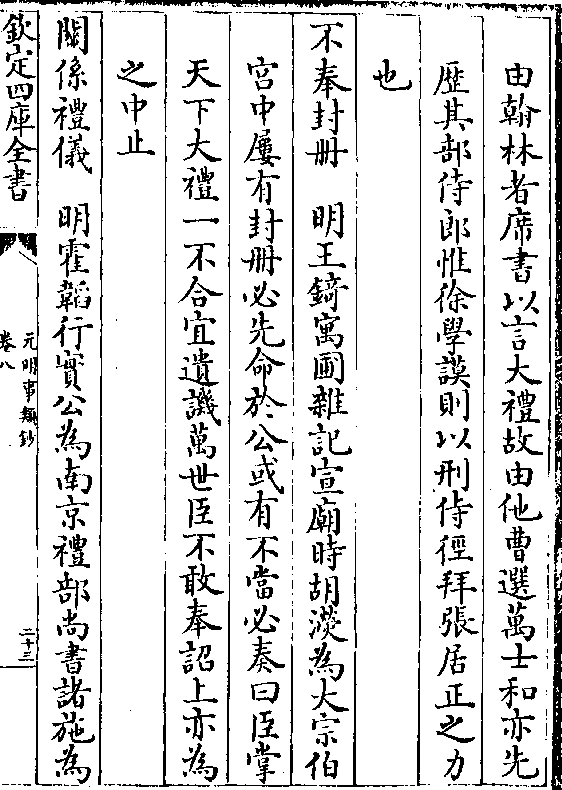 由翰林者席書以言大禮故由他曹選萬士和亦先
歴其部侍郎惟徐學謨則以刑侍徑拜張居正之力
也
不奉封冊　明王錡寓圃雜記宣廟時胡濙為大宗伯
宮中屢有封冊必先命於公或有不當必奏曰臣掌
天下大禮一不合宜遺譏萬世臣不敢奉詔上亦為
之中止
關係禮儀　明霍韜行實公為南京禮部尚書諸施為
欽定四庫全書
元明事類鈔
卷八
二十三